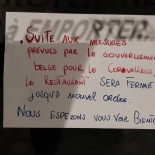 à EMPORTER...
SUITE AUX MESURES
PRÉVUES PAR LE GOUVERNEMENT
BELGE POUR LE CORONAVIRUS
LE RESTAURANT SERA FERMÉ
JUSQU'À NOUVEL ORDRE.
NOUS ESPEZONS VOUS VOIR BIENTÔT